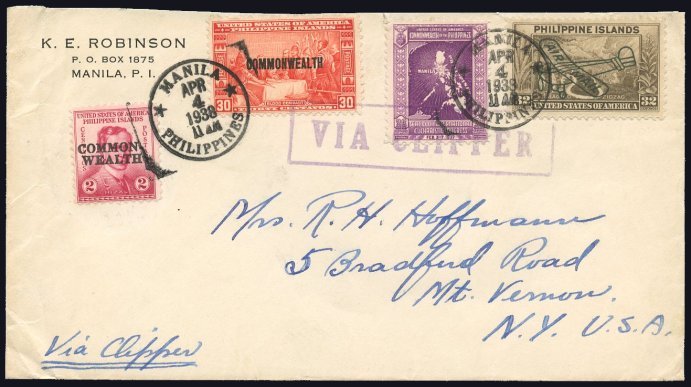 K. E. ROBINSON
P. O. BOX 1875
MANILA, P. I.
UNITED STATES OF AMERICA
PHILIPPINE ISLANDS
COMMONWEALTH
30 30
MANILA
APR
4
1938
11 AM
PHILIPPINES
UNITED STATES OF AMERICA
COMMONWEALTH OF THE PHILIPPINES
MANILA
PHILIPPINE ISLANDS
32 UNITED STATES OF AMERICA 32
MANILA
APR
4
1938
11 AM
PHILIPPINES
UNITED STATES OF AMERICA
PHILIPPINE ISLANDS
COMMON-
WEALTH
2 2
VIA CLIPPER
Mrs. R. H. Hoffmann
5 Bradford Road
Mt. Vernon.
N. Y. U.S.A.
Via Clipper